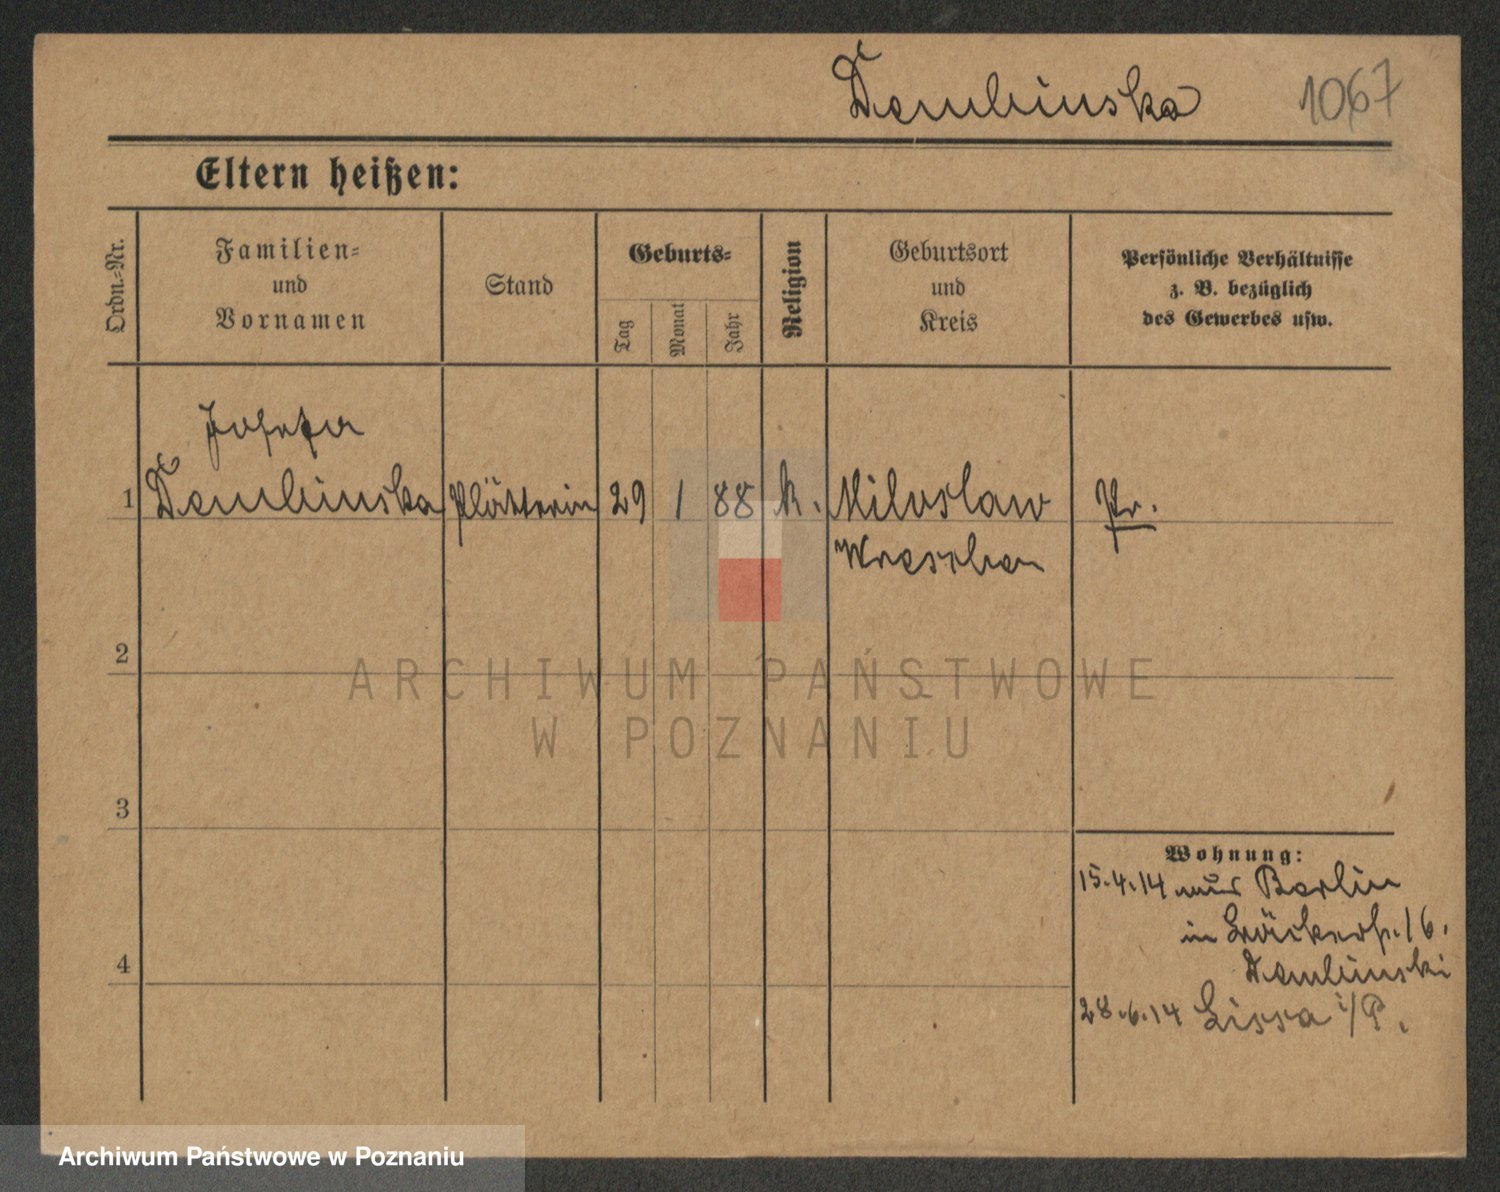 Dembinska 1067
Eltern heißen:
Ordn.=Nr.
Familien=
und
Vornamen
Stand
Geburts=
Tag
Monat
Jahr
Religion
Geburtsort
und
Kreis
Persönliche Verhältnisse
z. B. bezüglich
des Gewerbes usw.
Josefa
1 Dembinska Plätterin 29 1 88 k. Miloslaw Pr.
Wreschen
2
ARCHIWUM PAŃSTWOWE
W POZNANIU
3
Wohnung:
15.4.14 aus Berlin
in 16.
Dembinski
4
28.6.14 Lissa i/P.
Archiwum Państwowe w Poznaniu